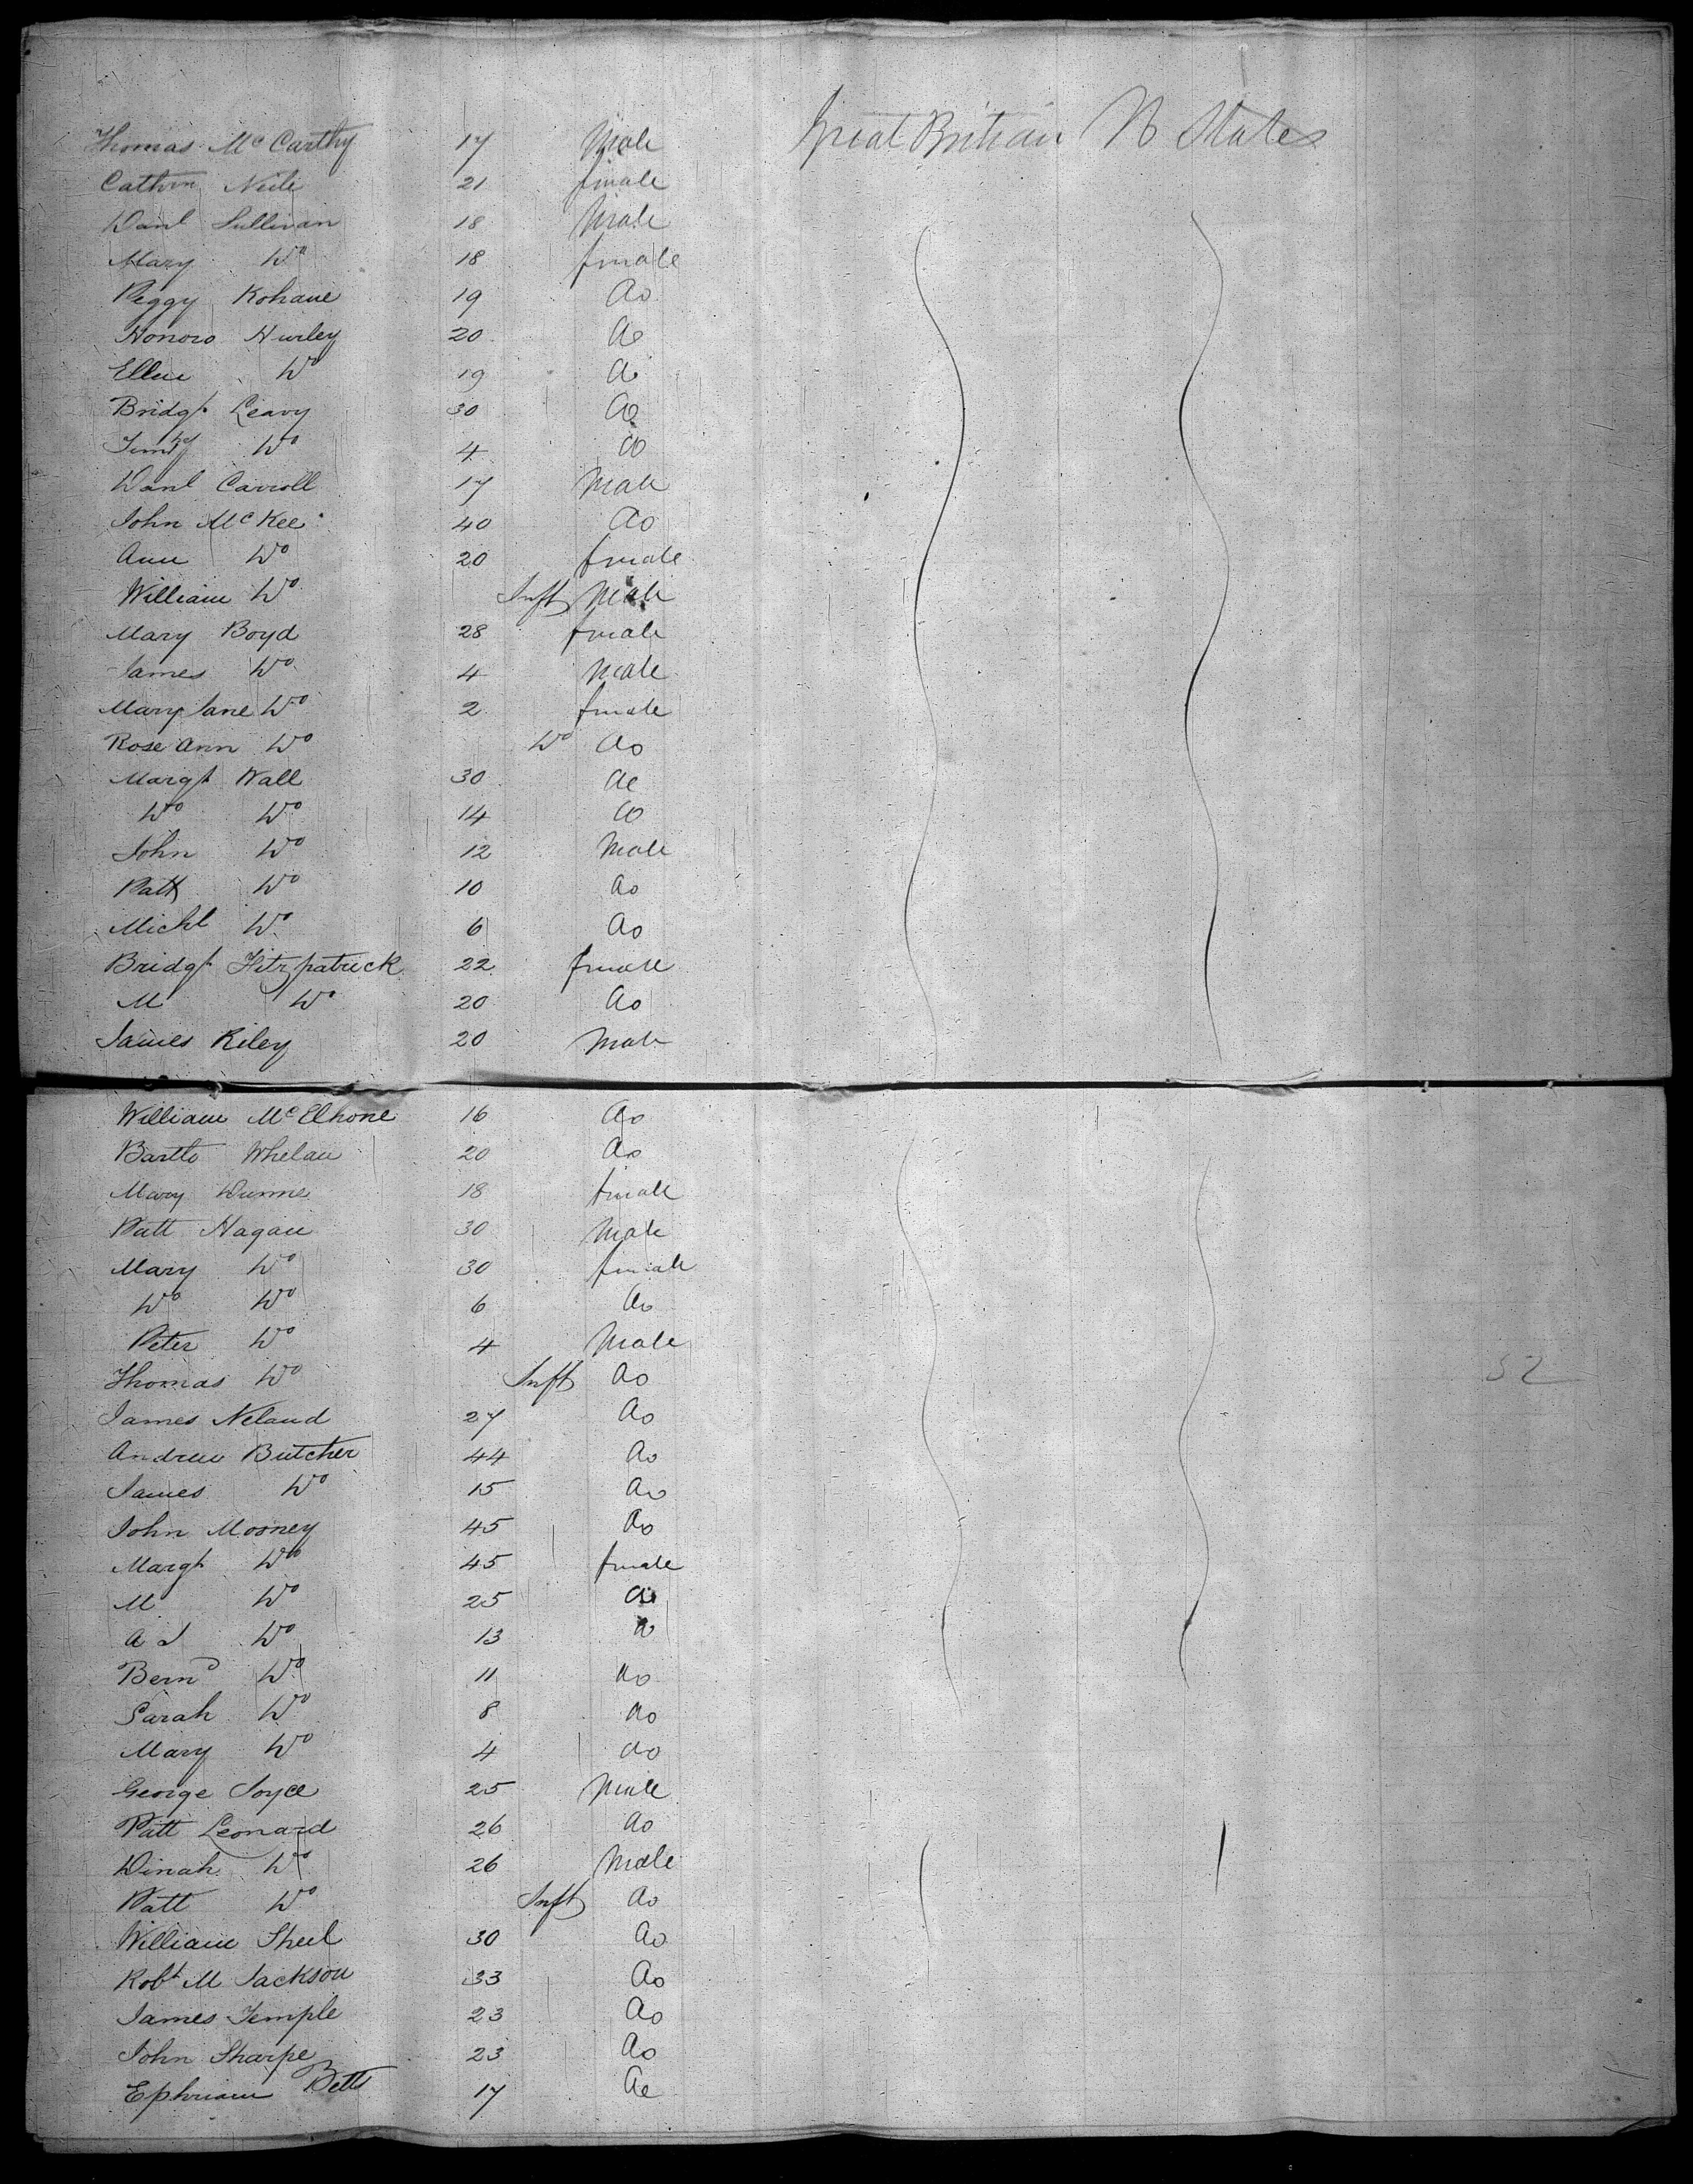 Thomas McCarthy 17 Male Great Britian U States
Cathrn Neile 21 female
Danl Sullivan 18 Male
Mary Do 18 female
Peggy Kohane 19 do
Honoro Hurley 20 do
Ellen Do 19 do
Bridgt Leavy 30 do
Timthy Do 4 do
Danl Carroll 17 Male
John McKee 40 do
Ann Do 20 female
William Do Inft Male
Mary Boyd 28 female
James Do 4 Male
Mary Jane Do 2 female
Rose Ann Do Do do
Margt Wall 30 do
Do Do 14 do
John Do 12 Male
Patk Do 10 do
Michl Do 6 do
Bridgt Fitzpatrick 22 female
M Do 20 do
James Riley 20 Male
William McElhone 16 do
Bartho Whelan 20 do
Mary Dunne 18 female
Patt Hagan 30 Male
Mary Do 30 female
Do Do 6 do
Peter Do 4 Male
Thomas Do Inft do 52
James Neland 27 do
Andrew Butcher 44 do
James Do 15 do
John Mooney 45 do
Margt Do 45 female
M Do 25 do
A J Do 13 do
Bernd Do 11 do
Sarah Do 8 do
Mary Do 4 do
George Joyce 25 Male
Patt Leonard 26 do
Dinah Do 26 Male
Patt Do Inft do
William Sheil 30 do
Robt M Jackson 33 do
James Temple 23 do
John Sharpe 23 do
Ephriam Betts 17 do